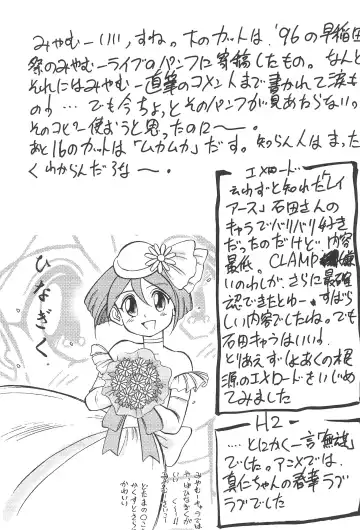 みやむーいい、すね。大のカットは、'96の早稲田
祭のみやむーライブのパンフに寄稿したもの。なんと
それにはみやむー直筆のコメントまで書かれて涙も
のっ…でも今ちょっとそのパンフが見あたらない。
そのコピー使おうと思ったのに〜。
あと16のカットは「ムカムカ」だす。知らん人はまった
くわからんだろな〜。
エメロード
云わずと知れた「レイ
アース」石田さんの
キャラでバリバリ好き
だったものだけど、内容
最低。CLAMP
いのわしが、さらに最確
認できたとゆー、すばら
しい内容でしたね。でも
石田キャラはいい。
とりあえずしょあくの根
源のエメロードをいじめ
てみました
H2
……とにかく一言「無謀」
でした。アニメでは、
真仁ちゃんの春華ラブ
ラブでした
ひなぎく
みやむーキャラは
やっぱひなぎくが
い〜く〜!!